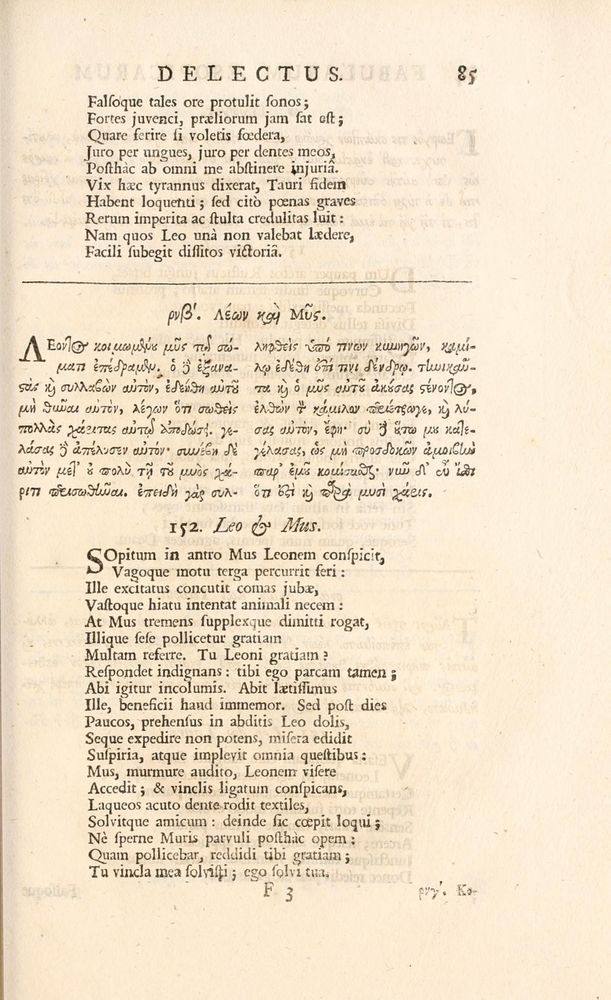 DELECTUS. 85
Falsoque tales ore protulit sonos;
Fortes juvenci, præliorum jam sat est;
Quare ferire si voletis fœdera,
Juro per ungues, juro per dentes meos,
Posthàc ab omni me abstinere injuriâ.
Vix hæc tyrannus dixerat, Tauri fidem
Habent loquenti; sed citò pœnas graves
Rerum imperita ac stulta credulitas luit:
Nam quos Leo unà non valebat lædere,
Facili subegit dissitos victoriâ.
ρνβʹ. Λέων καὶ Μῦς.
ΛΕοντος κοιμωμένου μῦς τῷ σώ-
ματι ἐπέδραμεν. ὁ δὲ ἐξανα-
στὰς καὶ συλλαβὼν αὐτὸν, ἐδεήθη αὐτοῦ
μὴ θῦναι αὐτὸν, λέγων ὅτι σωθεὶς
πολλὰς χάριτας αὐτῷ ἀποδώσει. γε-
λάσας δὲ ἀπέλυσεν αὐτόν· συνέβη δὲ
αὐτὸν μετ' οὐ πολὺ τῇ τοῦ μυὸς χά-
ριτι περισωθῆναι. ἐπειδὴ γὰρ συλ-
ληφθεὶς ὑπό τινων κυνηγῶν, καμί-
λῳ ἐδέθη ἐπί τινι δένδρῳ. τηνικαῦ-
τα καὶ ὁ μῦς αὐτοῦ ἀκούσας στένοντος,
ἐλθὼν τὸν κάμιλον περιέτρωγε, καὶ λύ-
σας αὐτὸν, ἔφη· σὺ δὲ οὕτω μου κατε-
γέλασας, ὡς μὴ προσδοκῶν ἀμοιβὴν
παρ' ἐμοῦ κομίσασθαι· νῦν δ' εὖ ἴσθι
ὅτι ἐστὶ καὶ παρὰ μυσὶ χάρις.
152. Leo & Mus.
SOpitum in antro Mus Leonem conspicit,
Vagoque motu terga percurrit feri:
Ille excitatus concutit comas jubæ,
Vastoque hiatu intentat animali necem:
At Mus tremens supplexque dimitti rogat,
Illique sese pollicetur gratiam
Multam referre. Tu Leoni gratiam?
Respondet indignans: tibi ego parcam tamen;
Abi igitur incolumis. Abit lætissimus
Ille, beneficii haud immemor. Sed post dies
Paucos, prehensus in abditis Leo dolis,
Seque expedire non potens, misera edidit
Suspiria, atque implevit omnia questibus:
Mus, murmure audito, Leonem visere
Accedit; & vinclis ligatum conspicans,
Laqueos acuto dente rodit textiles,
Solvitque amicum: deinde sic cœpit loqui;
Nè sperne Muris parvuli posthàc opem;
Quam pollicebar, reddidi tibi gratiam;
Tu vincla mea solvisti; ego solvi tua.
F 3 ρνγʹ. Κο-